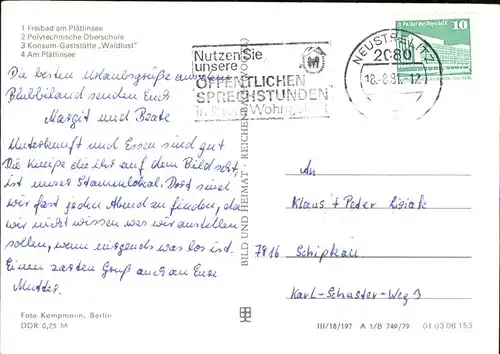 1 Freibad am Plätlinsee
2 Polytechnische Oberschule
3 Konsum-Gaststätte „Waldlust"
4 Am Plätlinsee
Die besten Urlaubsgrüße aus dem
senden Euch
Margit und Beate
Unterkunft und Essen sind gut
Die Kneipe die ihr auf dem Bild seht,
ist unser Stammlokal. Dort sind
wir fast jeden Abend zu finden, da
wir nicht wissen was wir anstellen
sollen, wenn nirgends was los ist.
Einen zarten Gruß auch an Eure
Mutter.
Foto Kampmann, Berlin
DDR 0,25 M
BILD UND HEIMAT · REICHENBACH
Nutzen Sie
unsere
ÖFFENTLICHEN
SPRECHSTUNDEN
in
NEUSTRELITZ
2080
18.-8.81.-12
Palast der Republik 10
An
Klaus + Peter
7816 Schipkau
Karl-Schuster-Weg 3
III/18/197 A 1/B 749/79 01 03 06 153